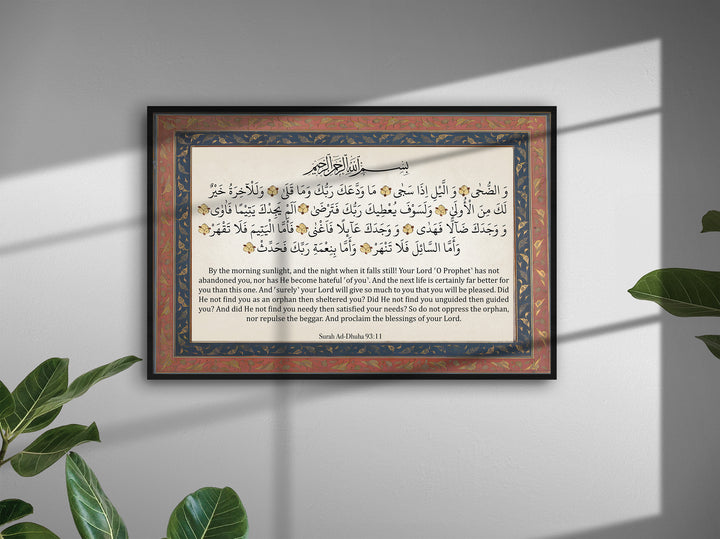 بِسْمِ اللَّهِ الرَّحْمَٰنِ الرَّحِيمِ
وَ الضُّحٰى وَ الَّيْلِ اِذَا سَجٰى مَا وَدَّعَكَ رَبُّكَ وَمَا قَلٰى وَلَلْاٰخِرَةُ خَيْرٌ
لَكَ مِنَ الْأُولٰى وَلَسَوْفَ يُعْطِيكَ رَبُّكَ فَتَرْضٰى اَلَمْ يَجِدْكَ يَتِيْمًا فَاٰوٰى
وَ وَجَدَكَ ضَآلًّا فَهَدٰى وَ وَجَدَكَ عَآئِلًا فَاَغْنٰى فَاَمَّا الْيَتِيْمَ فَلَا تَقْهَرْ
وَأَمَّا السَّائِلَ فَلَا تَنْهَرْ وَأَمَّا بِنِعْمَةِ رَبِّكَ فَحَدِّثْ
By the morning sunlight, and the night when it falls still! Your Lord ˹O Prophet˺ has not
abandoned you, nor has He become hateful ˹of you˺. And the next life is certainly far better for
you than this one. And ˹surely˺ your Lord will give so much to you that you will be pleased. Did
He not find you as an orphan then sheltered you? Did He not find you unguided then guided
you? And did He not find you needy then satisfied your needs? So do not oppress the orphan,
nor repulse the beggar. And proclaim the blessings of your Lord.
Surah Ad-Dhuha 93:11